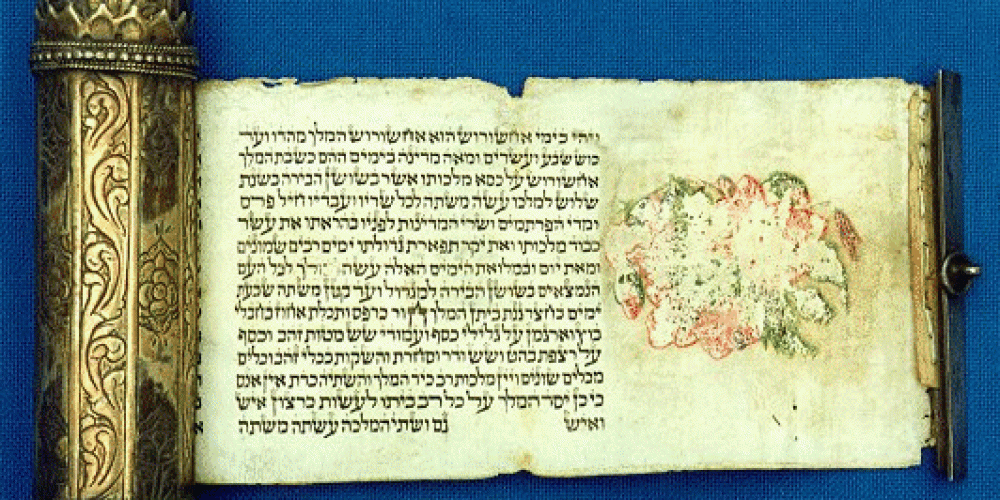 ויהי בימי אחשורוש הוא אחשורוש המלך מהדו ועד
כוש שבע ועשרים ומאה מדינה בימים ההם כשבת המלך
אחשורוש על כסא מלכותו אשר בשושן הבירה בשנת
שלוש למלכו עשה משתה לכל שריו ועבדיו חיל פרס
ומדי הפרתמים ושרי המדינות לפניו בהראתו את עשר
כבוד מלכותו ואת יקר תפארת גדולתו ימים רבים שמונים
ומאת יום ובמלואת הימים האלה עשה המלך לכל העם
הנמצאים בשושן הבירה למגדול ועד קטן משתה שבעת
ימים בחצר גנת ביתן המלך חור כרפס ותכלת אחוז בחבלי
בוץ וארגמן על גלילי כסף ועמודי שש מטות זהב וכסף
על רצפת בהט ושש ודר וסחרת והשקות בכלי זהב וכלים
מכלים שונים ויין מלכות רב כיד המלך והשתיה כדת אין אנס
כי כן יסד המלך על כל רב ביתו לעשות כרצון איש
ואיש גם ושתי המלכה עשתה משתה